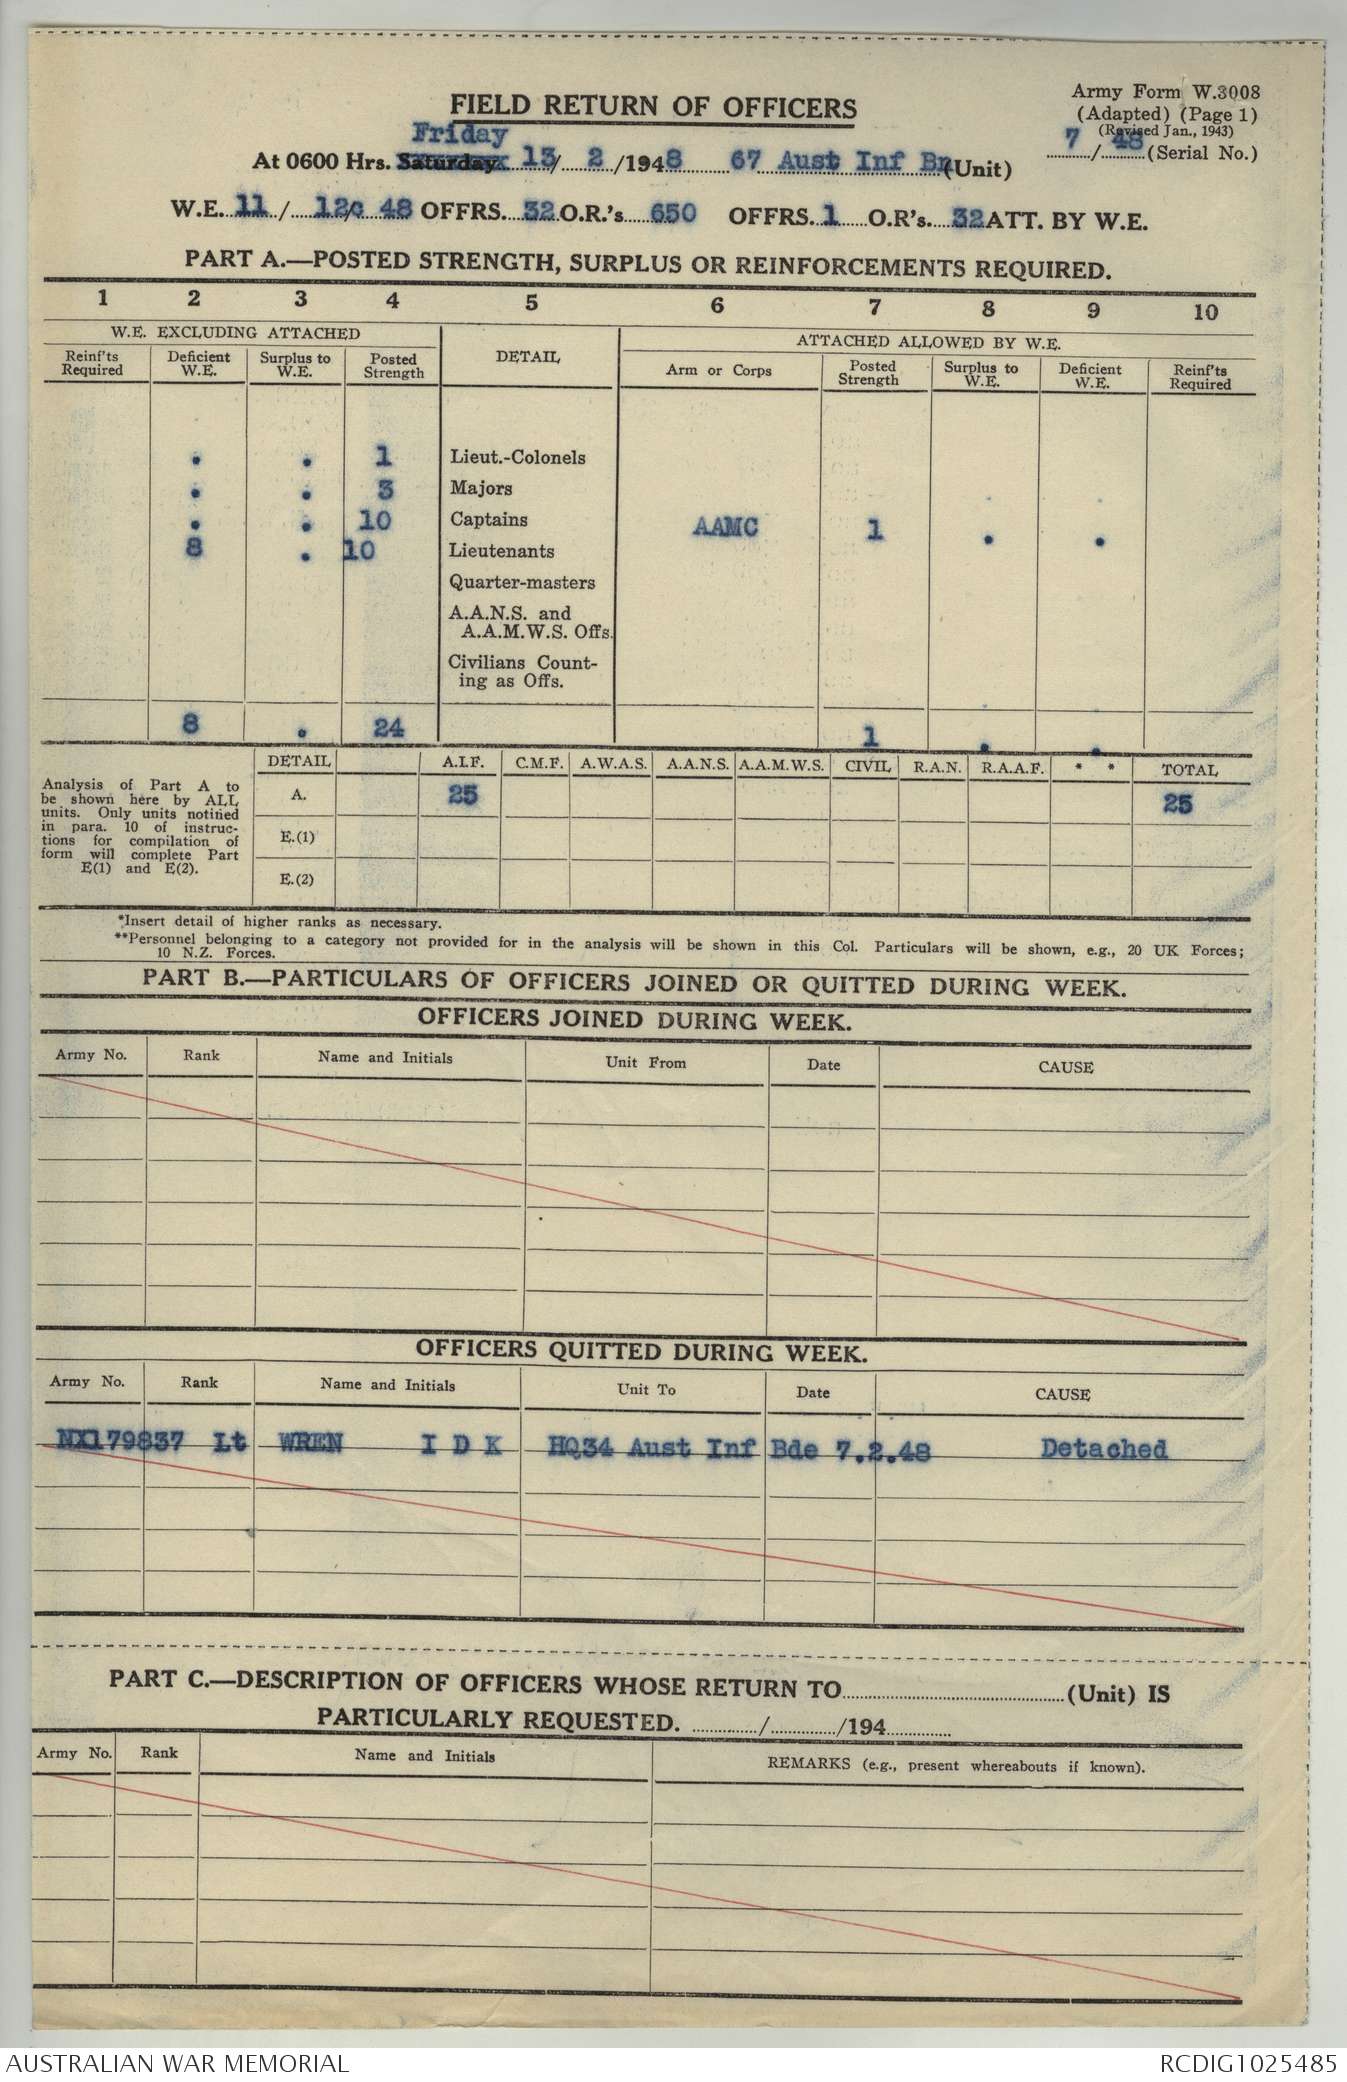 FIELD RETURN OF OFFICERS
Army Form W.3008
(Adapted) (Page 1)
(Revised Jan., 1943)
7/48 (Serial No.)
Friday
At 0600 Hrs. Saturday 13/2/1948 67 Aust Inf Bn (Unit)
W.E. 11/12c 48 OFFRS. 32 O.R.'s 650 OFFRS. 1 O.R's. 32 ATT. BY W.E.
PART A.—POSTED STRENGTH, SURPLUS OR REINFORCEMENTS REQUIRED.
1 2 3 4 5 6 7 8 9 10
W.E. EXCLUDING ATTACHED DETAIL ATTACHED ALLOWED BY W.E.
Reinf'ts Required Deficient W.E. Surplus to W.E. Posted Strength Arm or Corps Posted Strength Surplus to W.E. Deficient W.E. Reinf'ts Required
. . 1 Lieut.-Colonels
. . 3 Majors
. . 10 Captains AAMC 1 . .
8 . 10 Lieutenants
Quarter-masters
A.A.N.S. and
A.A.M.W.S. Offs.
Civilians Count-
ing as Offs.
8 . 24 1 . .
DETAIL A.I.F. C.M.F. A.W.A.S. A.A.N.S. A.A.M.W.S. CIVIL R.A.N. R.A.A.F. * * TOTAL
Analysis of Part A to
be shown here by ALL
units. Only units notified
in para. 10 of instruc-
tions for compilation of
form will complete Part
E(1) and E(2).
A. 25 25
E.(1)
E.(2)
*Insert detail of higher ranks as necessary.
**Personnel belonging to a category not provided for in the analysis will be shown in this Col. Particulars will be shown, e.g., 20 UK Forces;
10 N.Z. Forces.
PART B.—PARTICULARS OF OFFICERS JOINED OR QUITTED DURING WEEK.
OFFICERS JOINED DURING WEEK.
Army No. Rank Name and Initials Unit From Date CAUSE
OFFICERS QUITTED DURING WEEK.
Army No. Rank Name and Initials Unit To Date CAUSE
NX179837 Lt WREN I D K HQ34 Aust Inf Bde 7.2.48 Detached
PART C.—DESCRIPTION OF OFFICERS WHOSE RETURN TO (Unit) IS
PARTICULARLY REQUESTED. / /194
Army No. Rank Name and Initials REMARKS (e.g., present whereabouts if known).
AUSTRALIAN WAR MEMORIAL RCDIG1025485